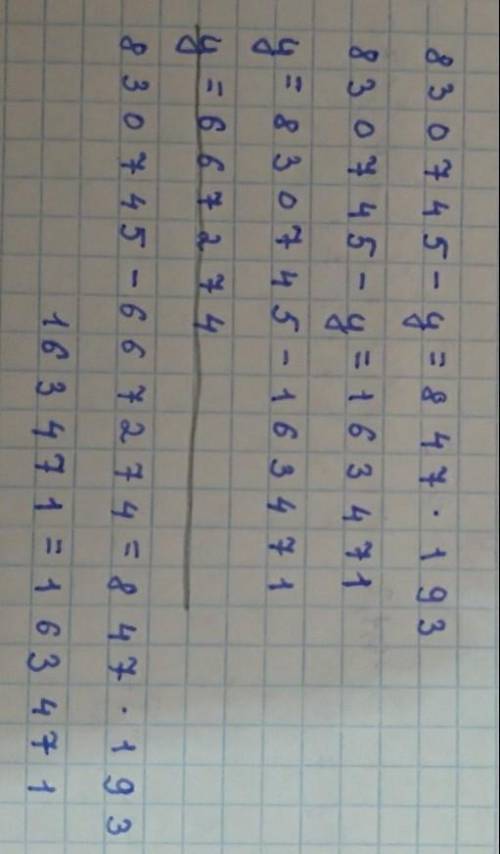 830745-y=847·193
830745-y=163471
y=830745-163471
y=667274
830745-667274=847·193
163471=163471